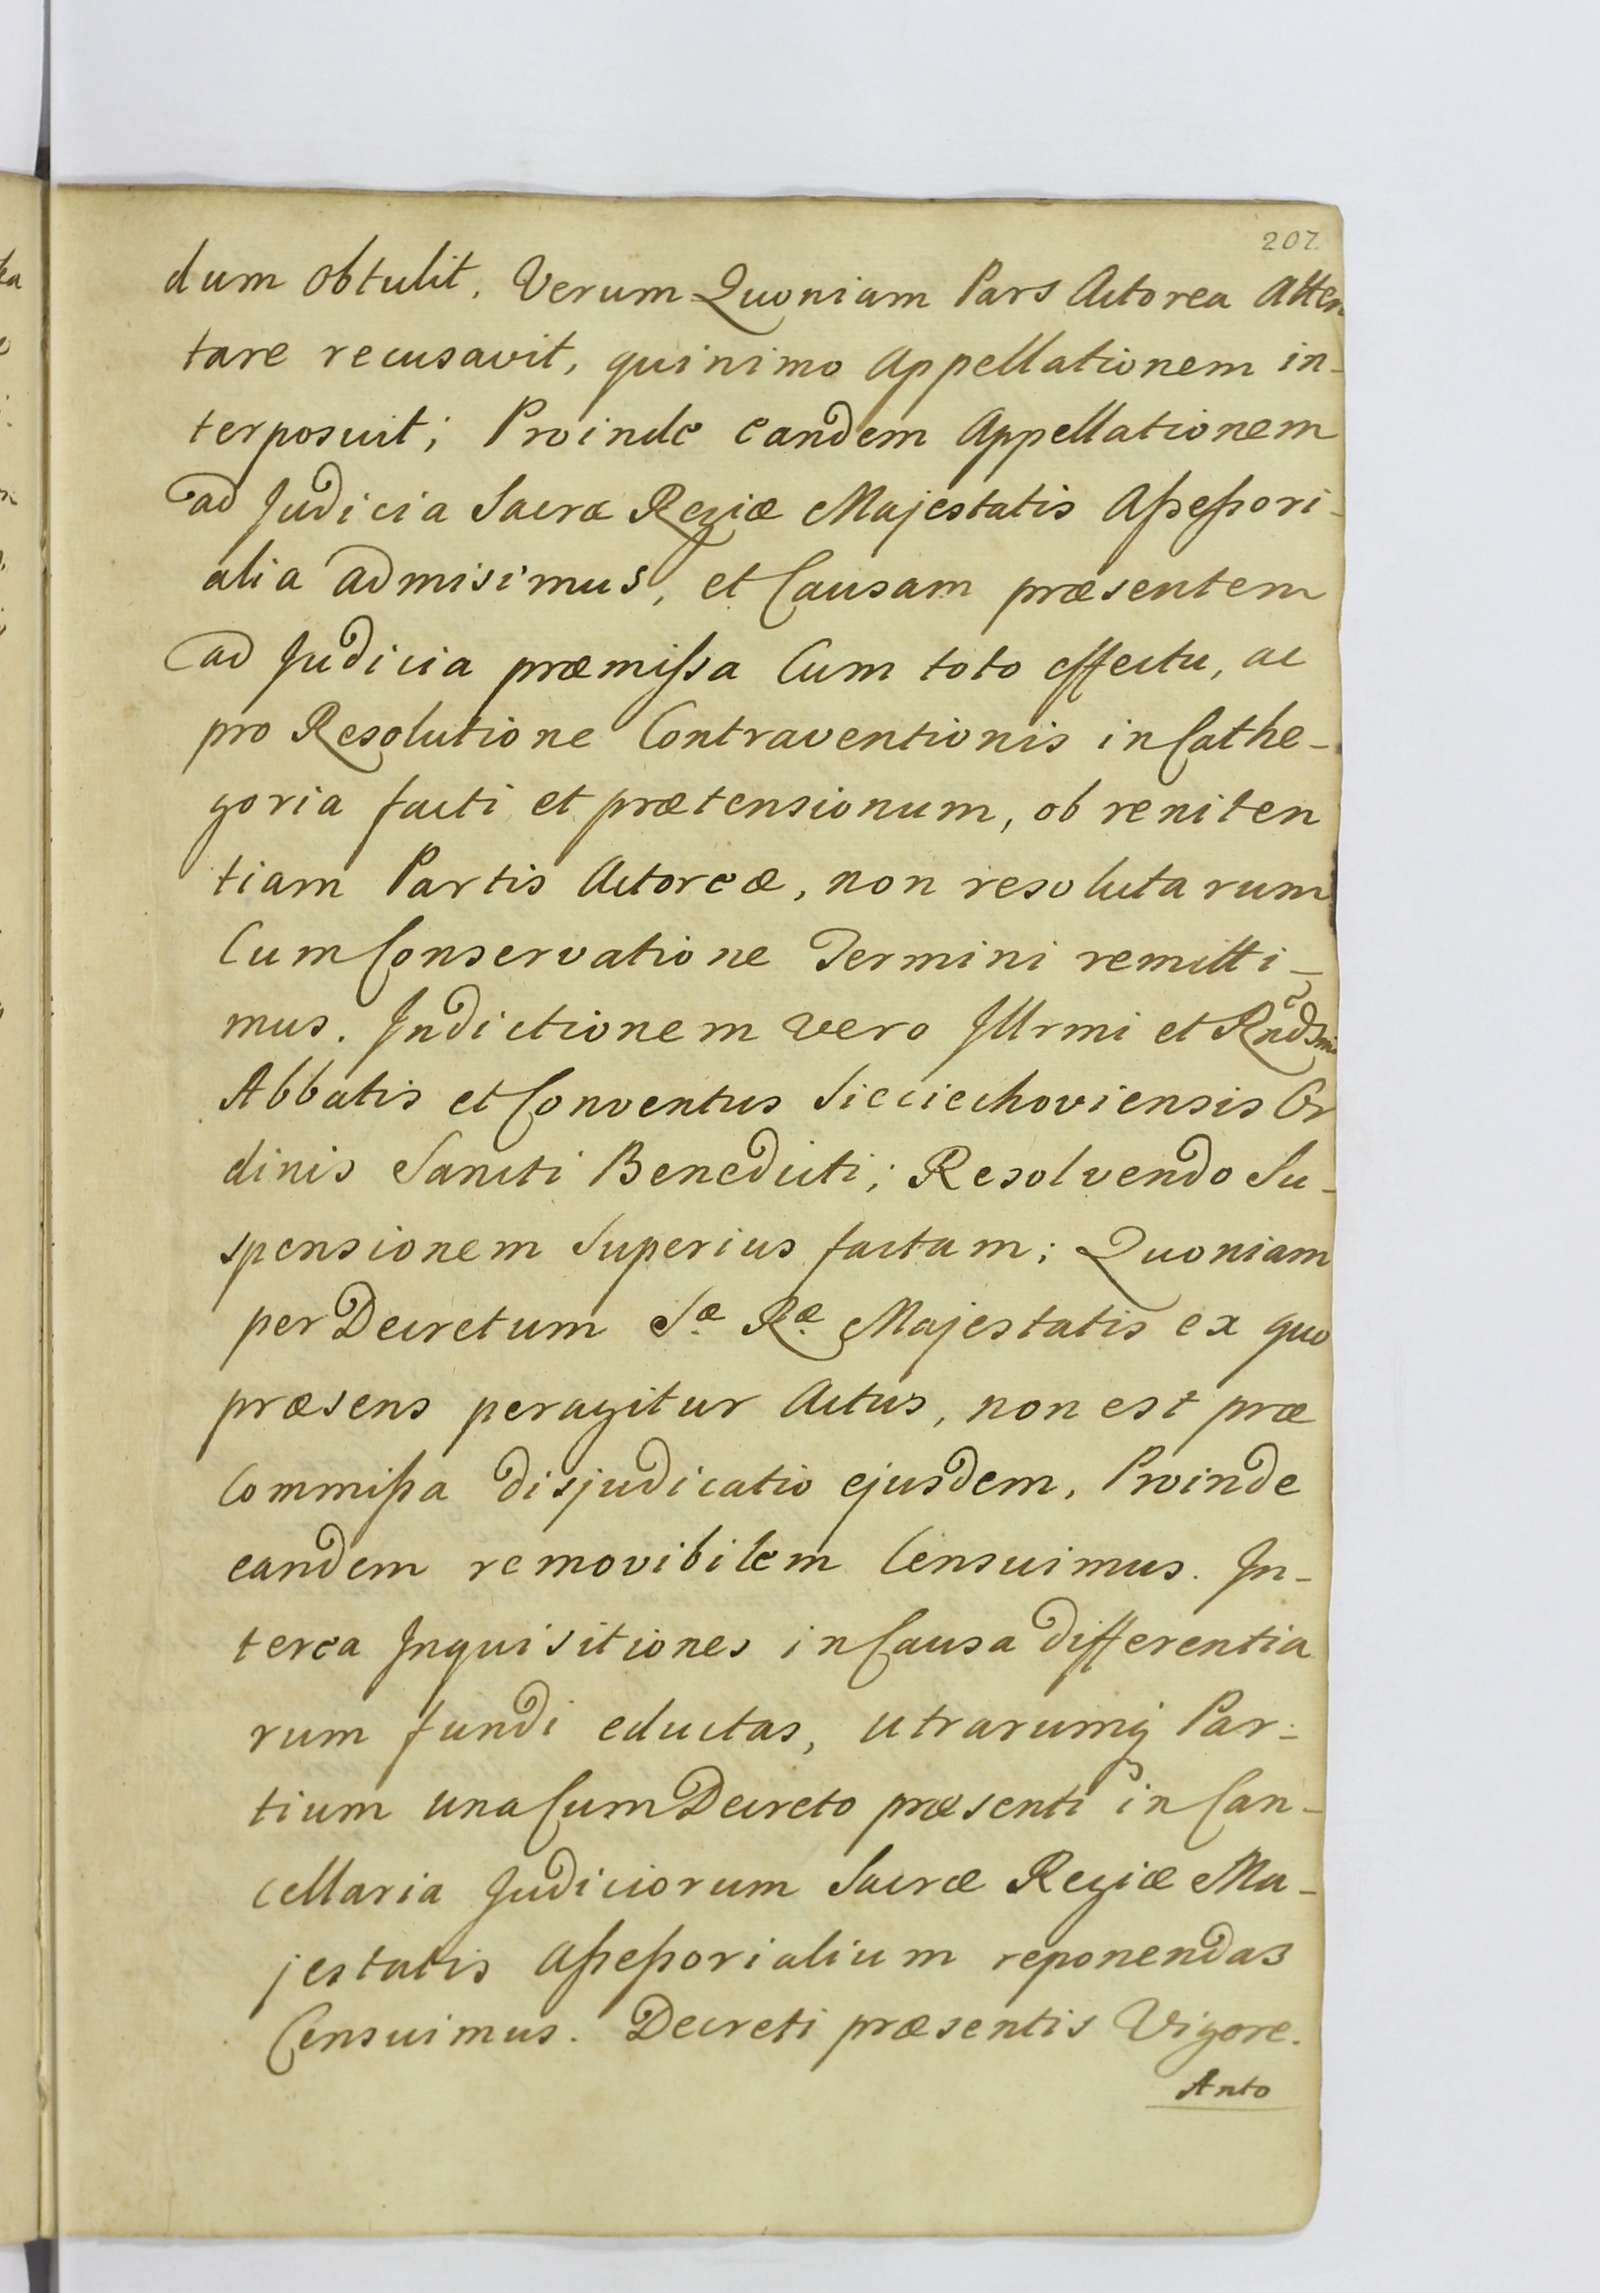 207.
dum obtulit. Verum Quoniam Pars Actorea Atten
tare recusavit, quinimo Appellationem in-
terposuit; Proinde eandem Appellationem
ad Judicia Sacræ Regiæ Majestatis Aſseſsori-
alia admisimus, et Causam præsentem
ad Judicia præmiſsa Cum toto effectu, ac
pro Resolutione Contraventionis in Cathe-
goria facti et prætensionum, ob reniten
tiam Partis Actoreæ, non resolutarum
Cum Conservatione Termini remitti-
mus. Indictionem vero Illrmi et Rndsmi
Abbatis et Conventus Sieciechoviensis Or
dinis Sancti Benedicti; Resolvendo Su-
spensionem Superius factam; Quoniam
per Decretum Sæ Ræ Majestatis ex quo
præsens peragitur Actus, non est præ
Commiſsa disjudicatio ejusdem, Proinde
eandem removibilem Censuimus. In-
terea Inquisitiones in Causa differentia
rum fundi eductas, utrarumq Par-
tium una Cum Decreto præsenti in Can-
cellaria Judiciorum Sacræ Regiæ Ma-
jestatis Aſseſsorialium reponendas
Censuimus. Decreti præsentis Vigore.
Anto